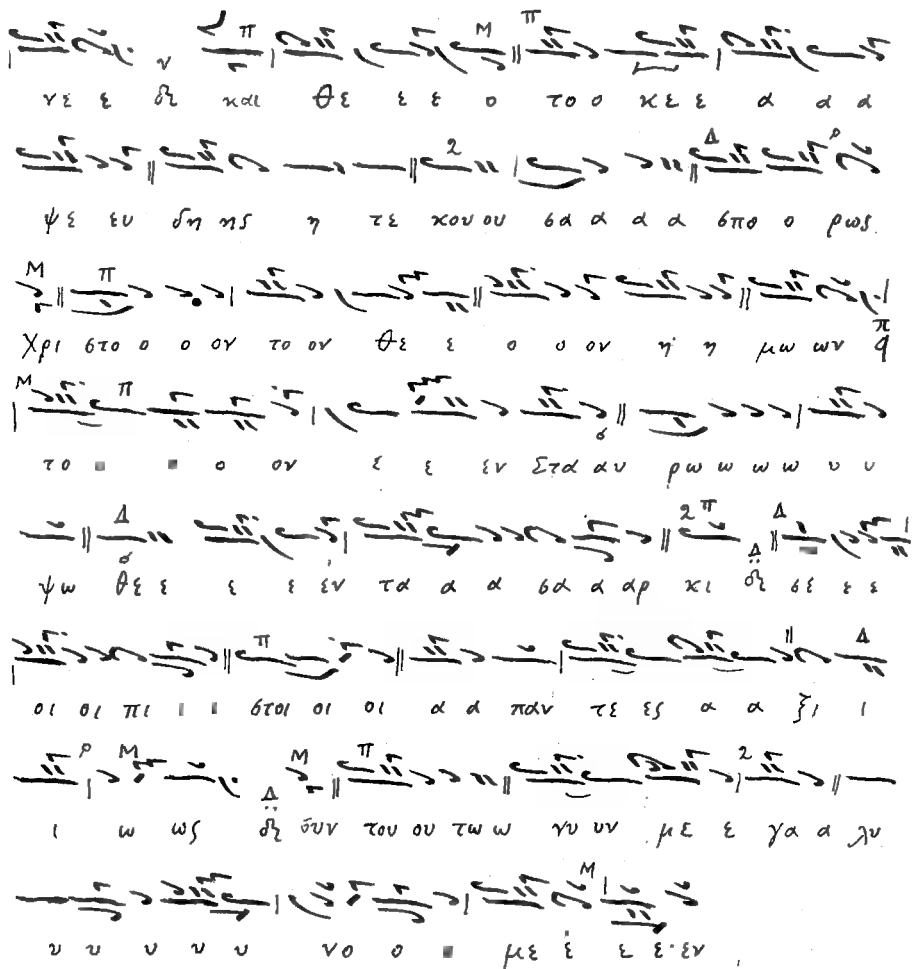 νε ε δι και θε ε ε ο το ο κε ε α α α
ψε ευ δη ης η τε κου ου σα α α α σπο ο ρως
Χρι στο ο ο ον το ον θε ε ο ο ον η η μω ων q
το ο ον ε ε εν Στα αυ ρω ω ω ω υ υ
ψω θε ε ε ε εν τα α α σα α αρ κι δι σε ε ε
οι οι πι ι ι στοι οι οι α α παν τε ες α α ξι ι
ι ω ως δι συν του ου τω ω νυ υν με ε γα α λυ
υ υ υ υ υ νο ο με ε ε ε εν